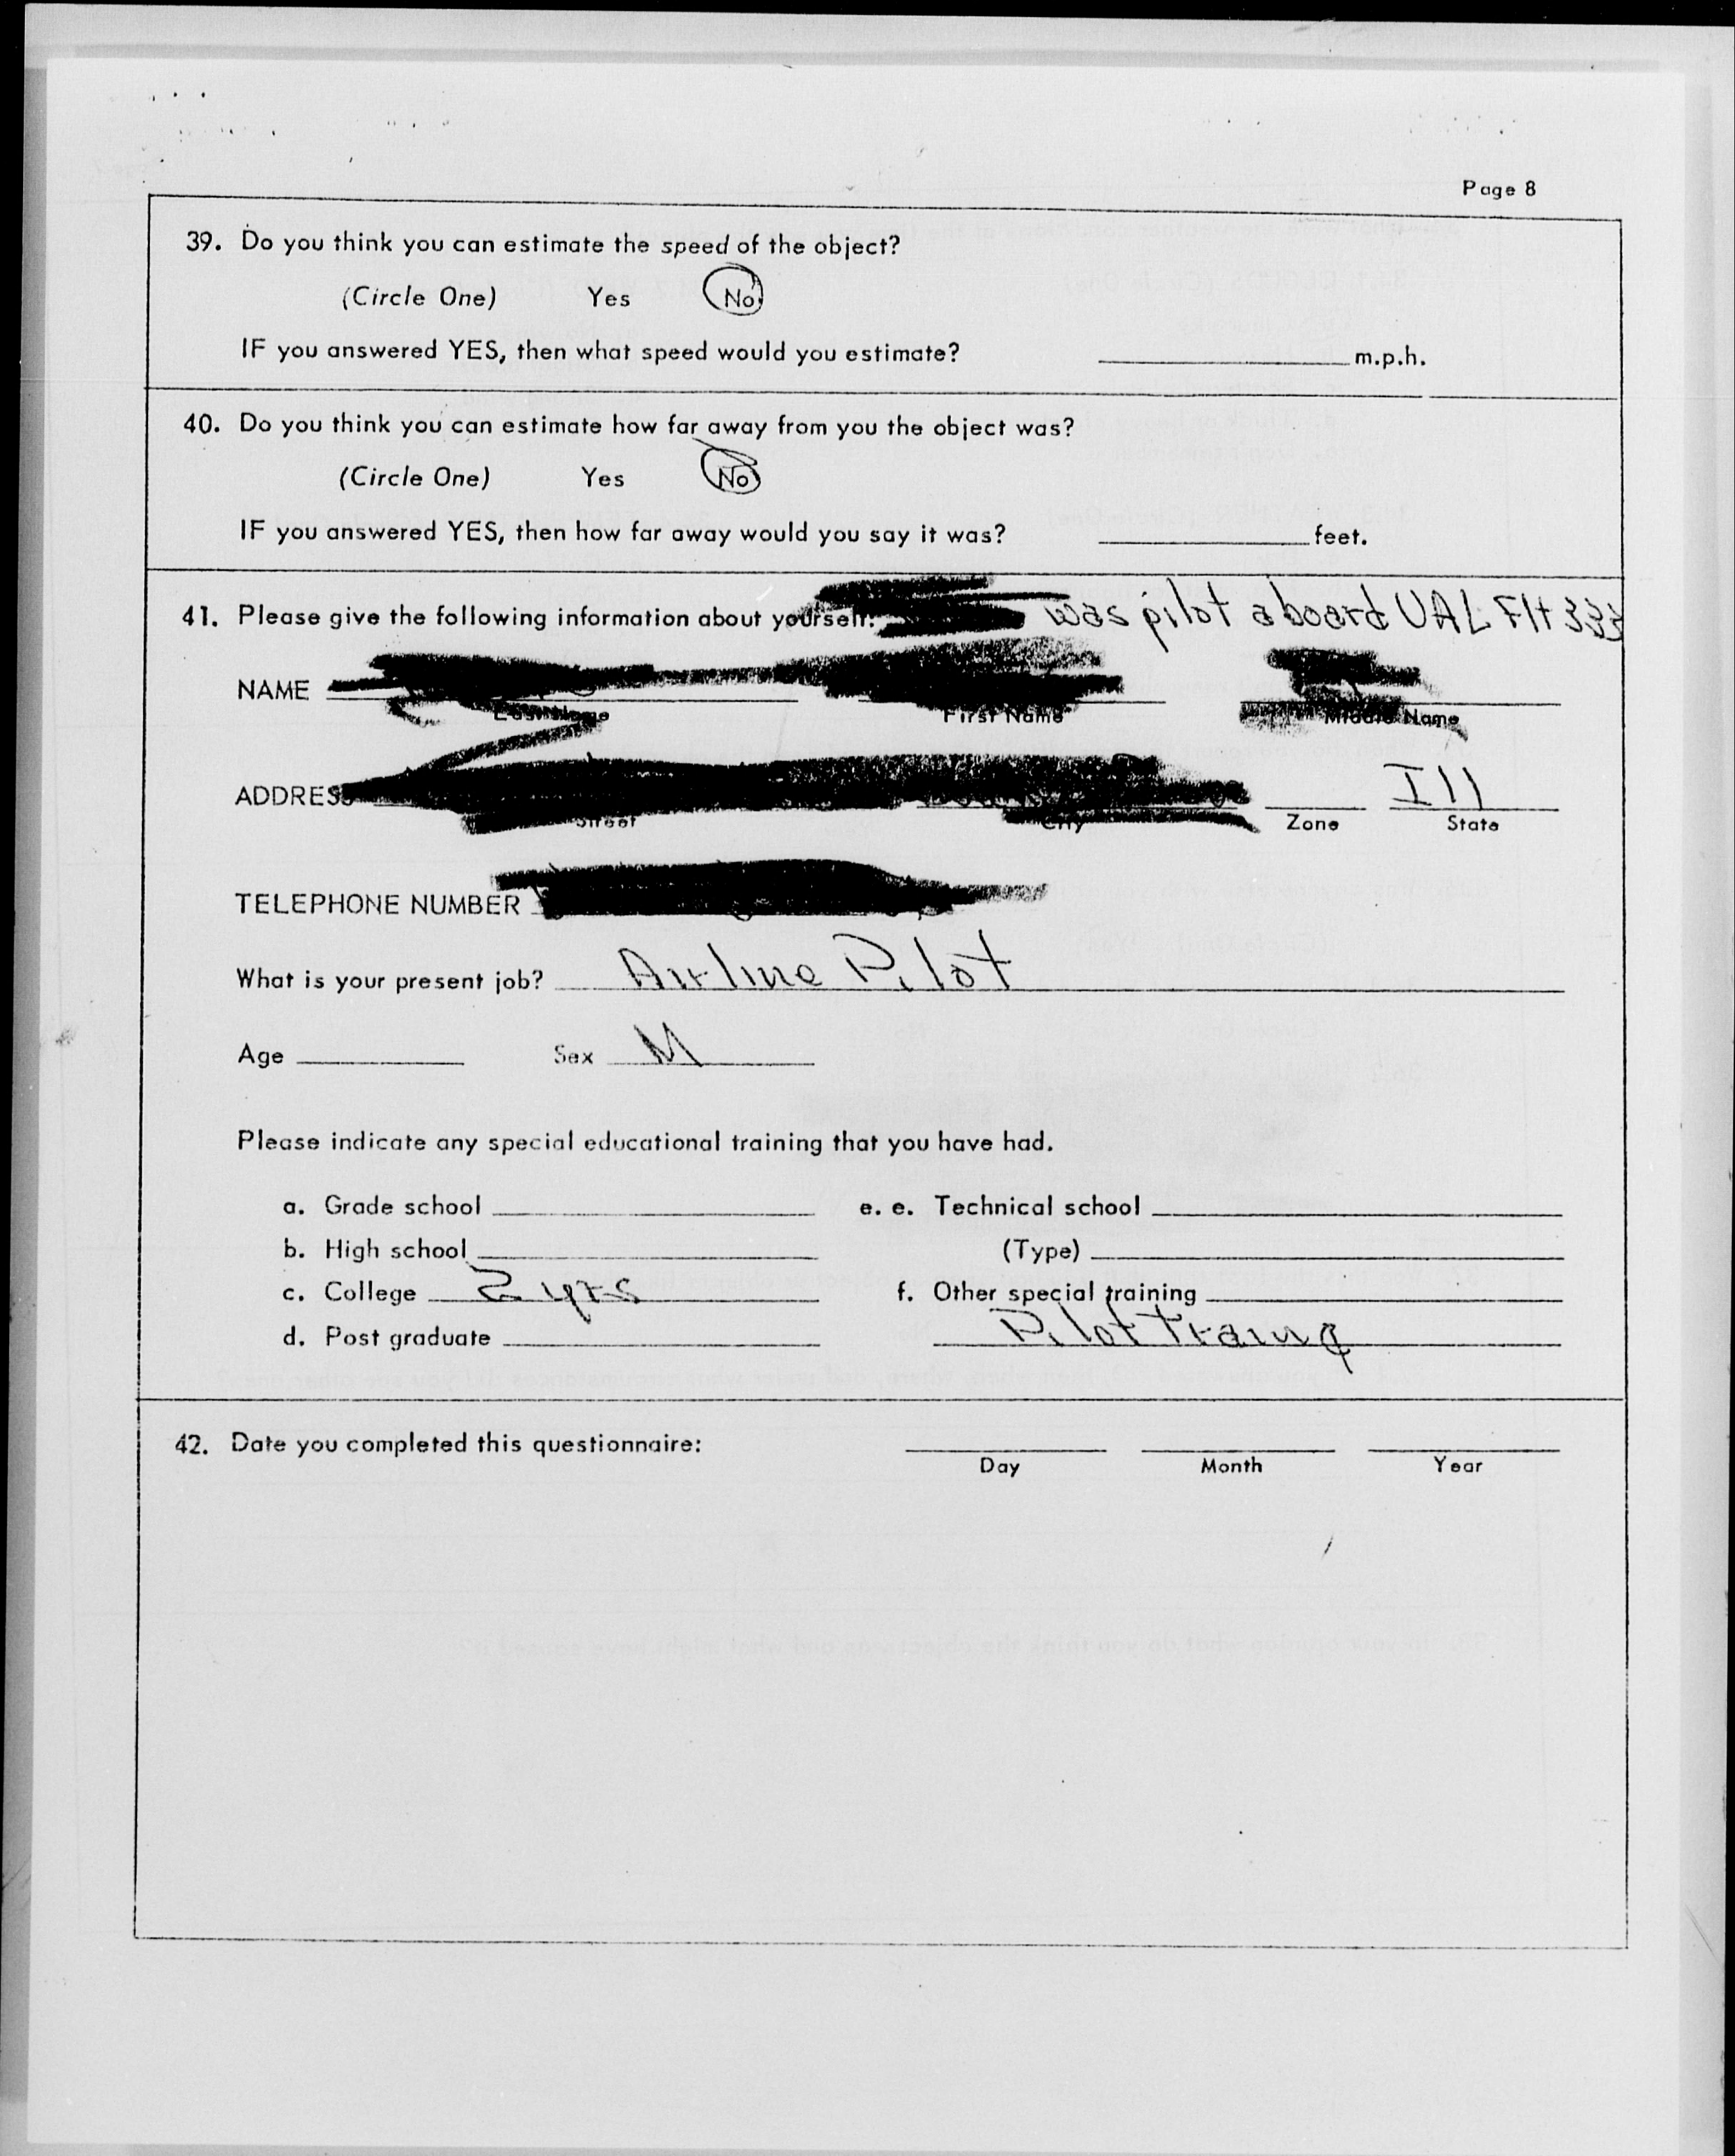 Page 8
39. Do you think you can estimate the speed of the object?
(Circle One) Yes No
IF you answered YES, then what speed would you estimate? m.p.h.
40. Do you think you can estimate how far away from you the object was?
(Circle One) Yes No
IF you answered YES, then how far away would you say it was? feet.
41. Please give the following information about yourself: was pilot aboard UAL Flt 333
NAME
Last Name First Name Middle Name
ADDRESS Ill
Street City Zone State
TELEPHONE NUMBER
What is your present job? Airline Pilot
Age Sex M
Please indicate any special educational training that you have had.
a. Grade school e. e. Technical school
b. High school (Type)
c. College 2 yrs f. Other special training
d. Post graduate Pilot Traing
42. Date you completed this questionnaire:
Day Month Year